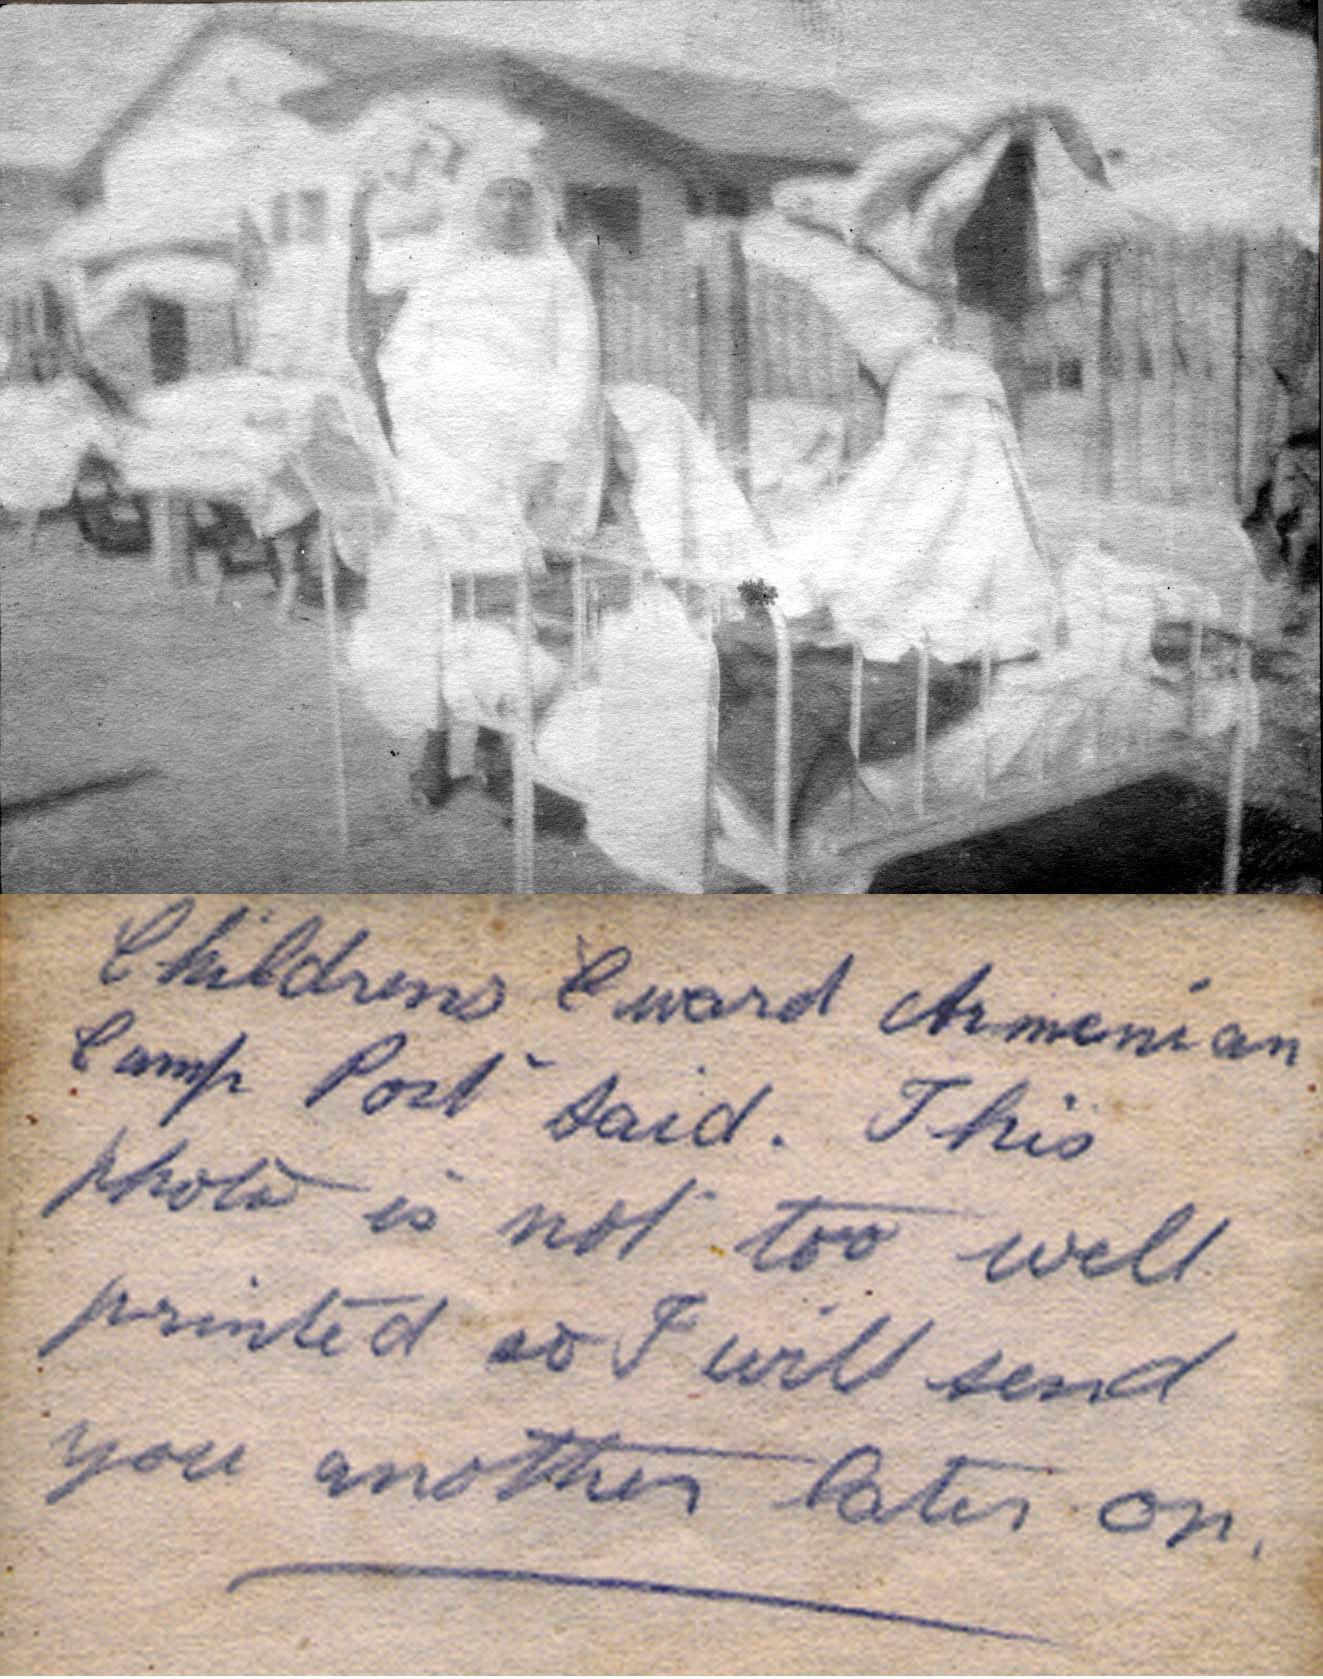 Childrens C ward Armenian
Camp Port Said. This
photo is not too well
printed so I will send
you another later on.